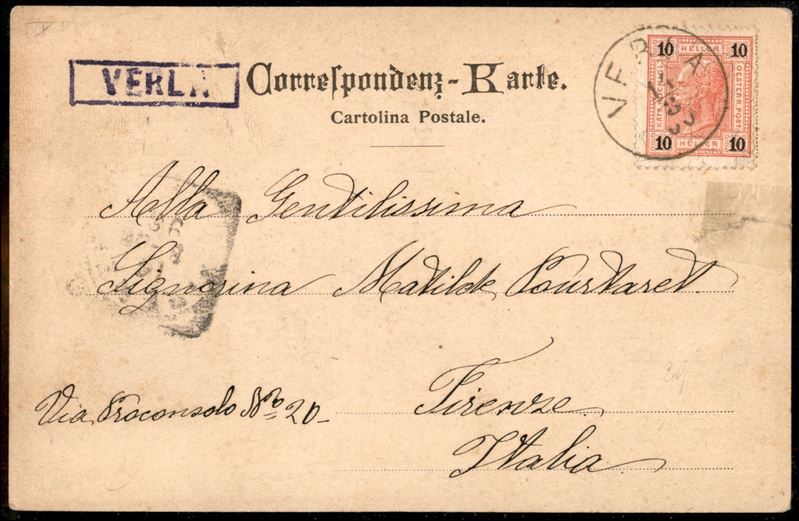 VERLA
Correspondenz-Karte.
Cartolina Postale.
10 HELLER 10
OESTERR. POST.
10 HELLER 10
VERLA
Alla Gentilissima
Signorina Matilde Pourtaret.
Via Proconsolo No 20-
Firenze
Italia